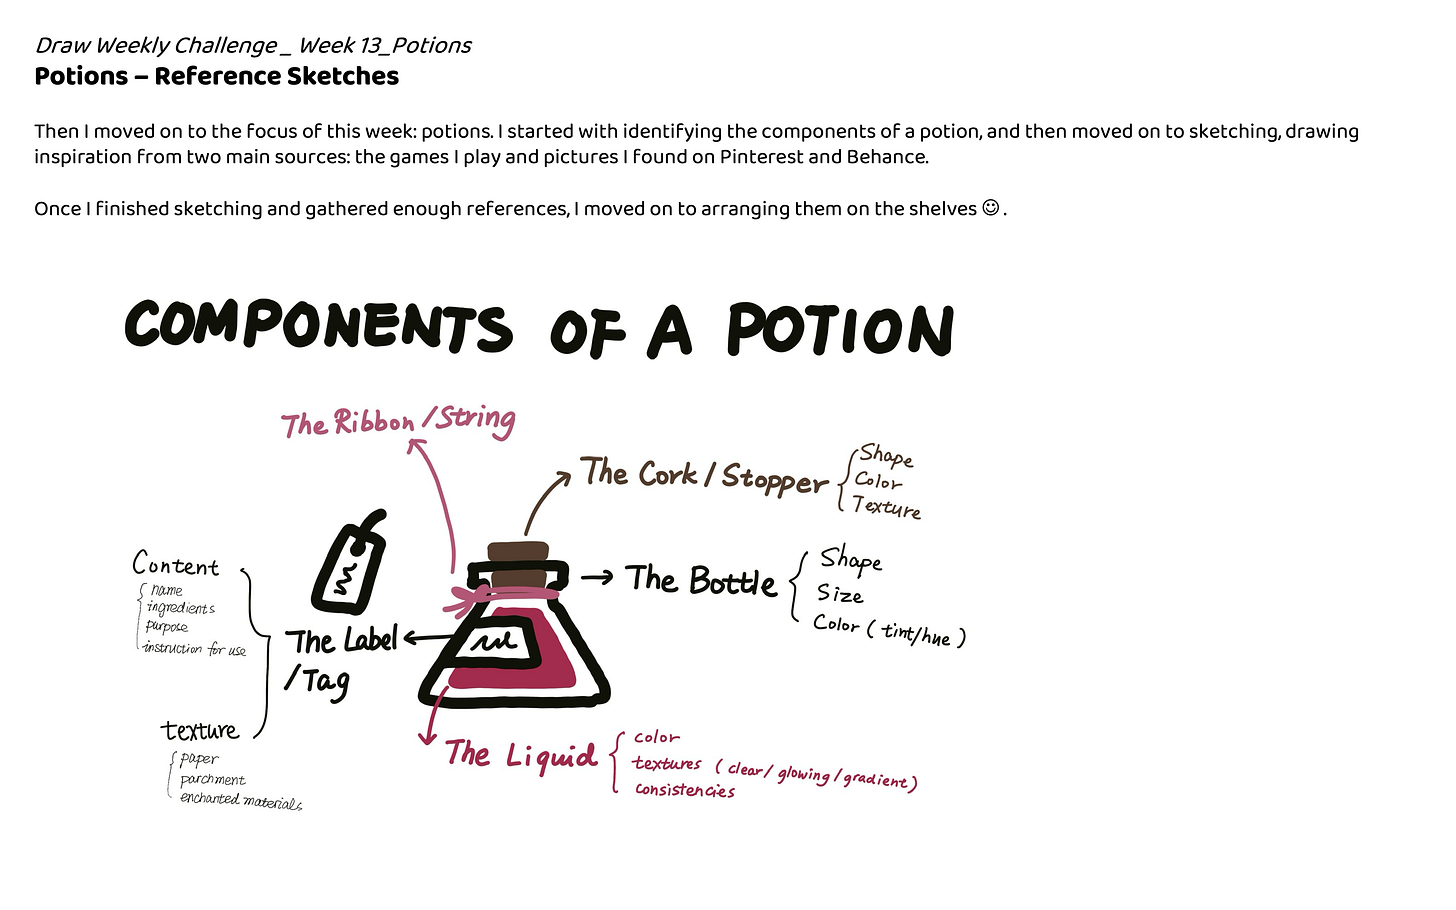 Draw Weekly Challenge _ Week 13_Potions
Potions – Reference Sketches
Then I moved on to the focus of this week: potions. I started with identifying the components of a potion, and then moved on to sketching, drawing
inspiration from two main sources: the games I play and pictures I found on Pinterest and Behance.
Once I finished sketching and gathered enough references, I moved on to arranging them on the shelves ☺.
COMPONENTS OF A POTION
The Ribbon/String
The Cork/Stopper
Shape
Color
Texture
The Bottle
Shape
Size
Color (tint/hue)
The Label
/Tag
Content
name
ingredients
purpose
instruction for use
texture
paper
parchment
enchanted materials
The Liquid
color
textures (clear/glowing/gradient)
consistencies